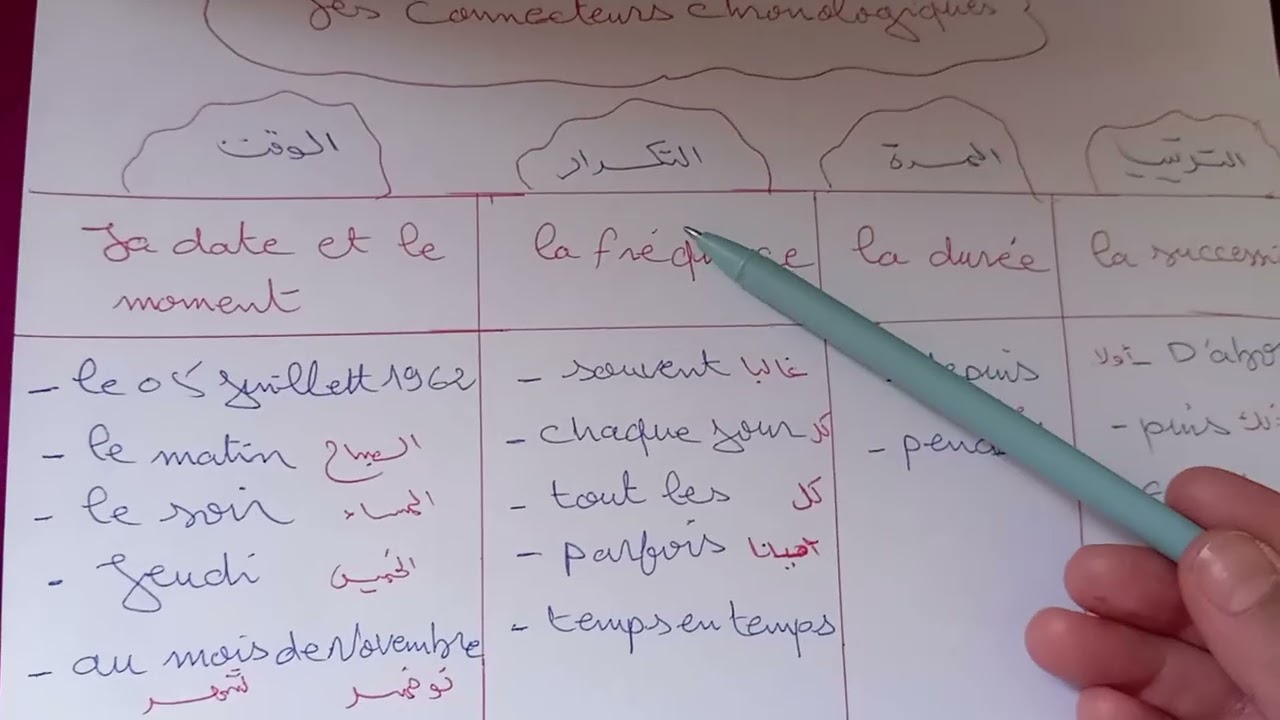 Les Connecteurs chronologiques :
الوقت
التكرار
المدة
الترتيب
La date et le
moment
la fré
la durée
la successi
- le 05 Juillett 1962
- le matin الصباح
- le soir المساء
- Jeudi الخميس
- au mois de Novembre
شهر نوفمبر
- souvent غالبا
- chaque jour كل
- tout les كل
- parfois أحيانا
- temps en temps
- pend
أولا - D'abo
- puis